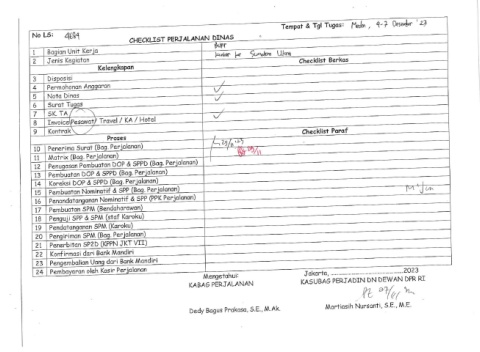 Tempat & Tgl Tugas: Medan, 4-7 Desember '23
No LS:
CHECKLIST PERJALANAN DINAS
1 Bagian Unit Kerja
2 Jenis Kegiatan Sumatera Utara
Kelengkapan Checklist Berkas
3 Disposisi
4 Permohonan Anggaran
5 Nota Dinas
6 Surat Tugas
7 SK. TA
8 Invoice Pesawat/ Travel / KA / Hotel
9 Kontrak
Proses Checklist Paraf
10 Penerima Surat (Bag. Perjalanan)
11 Matrix (Bag. Perjalanan)
12 Penugasan Pembuatan DOP & SPPD (Bag. Perjalanan)
13 Pembuatan DOP & SPPD (Bag. Perjalanan)
14 Koreksi DOP & SPPD (Bag. Perjalanan)
15 Pembuatan Nominatif & SPP (Bag. Perjalanan)
16 Penandatanganan Nominatif & SPP (PPK Perjalanan)
17 Pembuatan SPM (Bendaharawan)
18 Penguji SPP & SPM (staf Karoku)
19 Pendatanganan SPM (Karoku)
20 Pengiriman SPM (Bag. Perjalanan)
21 Penerbitan SP2D (KPPN JKT VII)
22 Konfirmasi dari Bank Mandiri
23 Pengembalian Uang dari Bank Mandiri
24 Pembayaran oleh Kasir Perjalanan
Mengetahui:
KABAG PERJALANAN
Jakarta, 2023
KASUBAG PERJADIN DN DEWAN DPR RI
Dedy Bagus Prakasa, S.E., M.Ak.
Martiasih Nursanti, S.E., M.E.